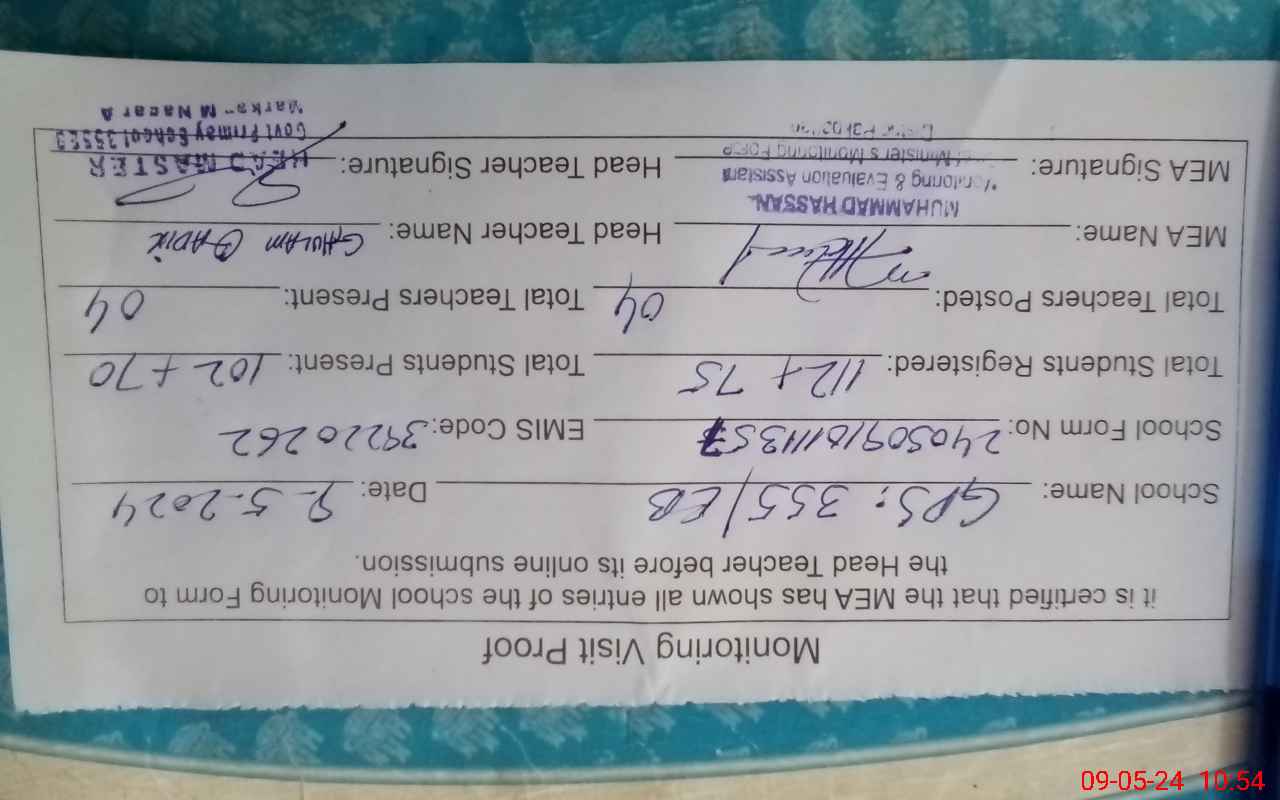 Monitoring Visit Proof
it is certified that the MEA has shown all entries of the school Monitoring Form to
the Head Teacher before its online submission.
School Name: GPS: 355/EB Date: 9-5-2024
School Form No: EMIS Code: 39220262
Total Students Registered: 112 + 75 Total Students Present: 102 + 70
Total Teachers Posted: 04 Total Teachers Present: 04
MEA Name: Head Teacher Name: GHULAM QADIR
MUHAMMAD HASSAN
Monitoring & Evaluation Assistant
Minister's Monitoring Force
MEA Signature: Head Teacher Signature:
HEAD MASTER
Govt Primay School
Markaz M Nagar A
09-05-24 10:54